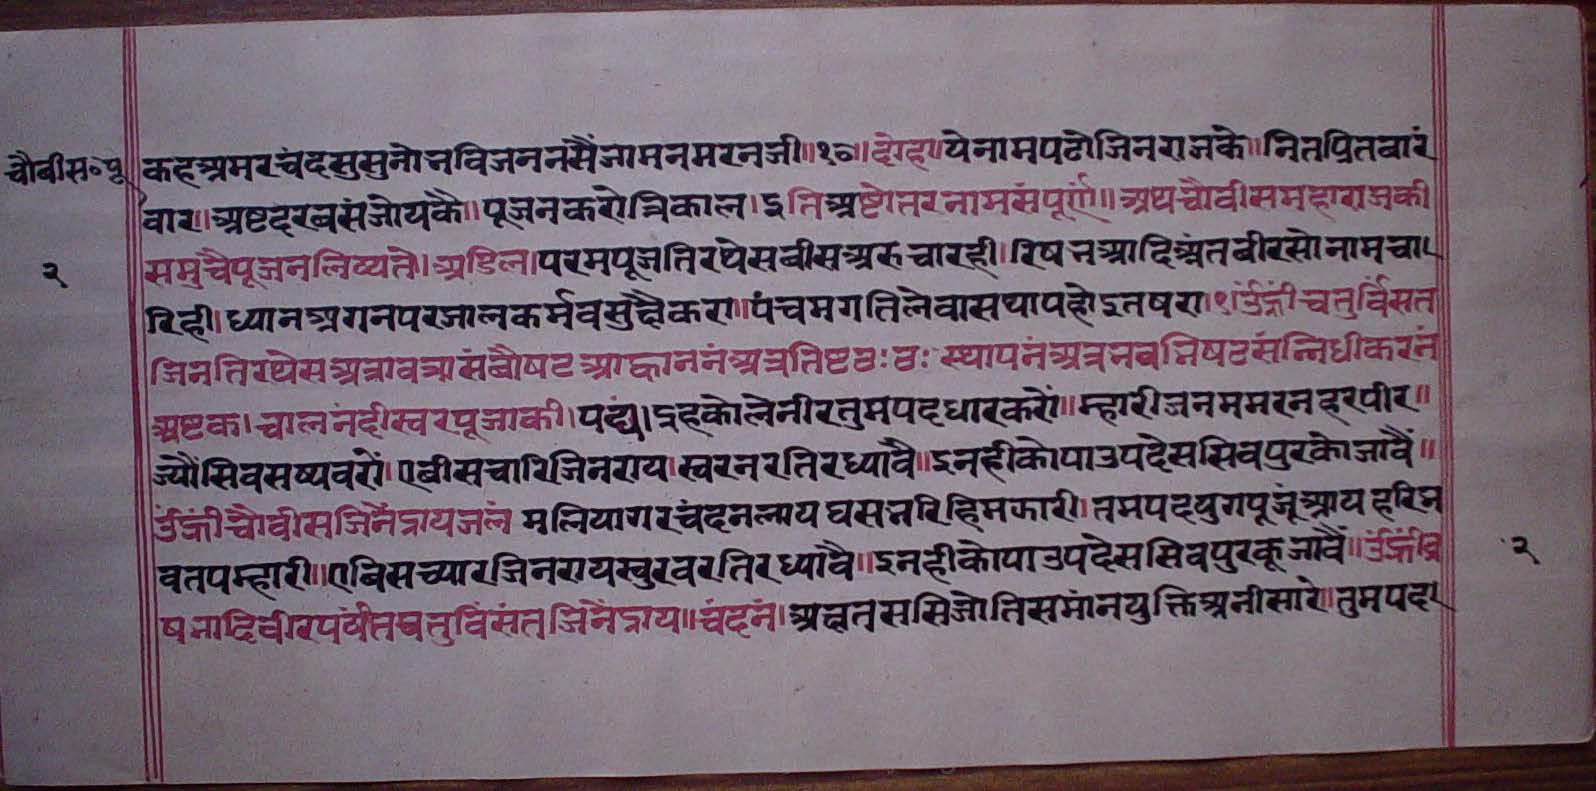 चौबीस॰पू
कहअमरचंदसुसुनोभविजननसैंजामनमरनजी॥१०॥दोहा॥येनामपढोजिनराजके॥नितप्रितबारं
बार॥अष्टदरबसंजोयकै॥पूजनकरोत्रिकाल।इतिअष्टोतरनामसंपूर्णं॥अथचौवीसमहाराजकी
समुचैपूजनलिष्यते।अडिल।परमपूजतिरथेसबीसअरुचारही।रिषभआदिअंतबीरसोनामचा
२
रिही।ध्यानअगनपरजालकर्मवसुछैकरा॥पंचमगतिलेवासथापहोइतषरा।१।उंह्रींचतुर्विसत
जिनतिरथेसअत्रावत्रासंबौषटआह्वाननंअत्रतिष्टठःठःस्थापनंअत्रमवभिषटसंन्निधीकरनं
अष्टक।चालनंदीस्वरपूजाकी।पद्य।द्रहकोलेनीरतुमपदधारकरों॥म्हारीजनममरनहरपीर॥
ज्यौंसिवसष्यवरों।एबीसचारिजिनराय।स्वरनरतिरध्यावै॥इनहीकोपाउपदेससिवपुरकोजावैं॥
उंह्रींचौवीसजिनैंद्रायजलं मलियागरचंदनलायघसभरिहिमकारी।तमपदयुगपूजूंआयहरिभ
वतपम्हारी॥एबिसच्यारजिनरायस्वुरवरतिरध्यांवै॥इनहीकोपाउपदेससिवपुरकूजावैं॥उंह्रींव्र
२
षभादिवीरपंर्यंतचतुविंसंतजिनैंद्राय॥चंदनं।अछतससिजोतिसमांनयुक्तिअनीसारे॥तुमपद